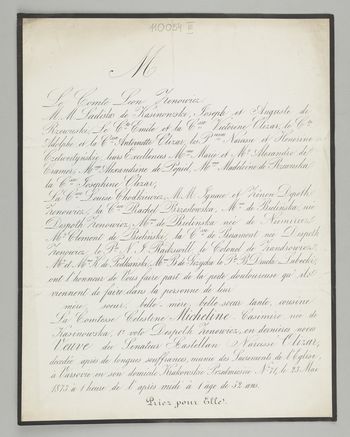 110054 III
M
Le Comte Léon Zenowicz
M.M. Ladislas de Kasinowski, Joseph et Auguste de
Rzewuski, Le Cte Emile et la Ctesse Victorine Olizar, le Cte
Adolphe et la Ctesse Antoinette Olizar, la Pcesse Narcisse et Honorine
leurs Excellences Mme Marie et Mr Alexandre de
Cramer, Mme Alexandrine de Mme Madeleine de
la Ctesse Joséphine Olizar,
La Ctesse Louise Chodkiewicz, M.M. Ignace et Zénon Despoth
Zenowicz, la Ctesse Rachel Brzostowska, Mme de Bielinska née
Despoth Zenowicz, Mme de Bielinska née de
Mr Clément de la Ctesse de née Despoth
Zenowicz, le Pce Radziwill, le Colonel de
Mr et Mme de le Pce Drucki Lubecki
ont l'honneur de Vous faire part de la perte douloureuse qu'ils
viennent de faire dans la personne de leur
mère, soeur, belle-mère, belle soeur, tante, cousine
La Comtesse Célestine Micheline Casimire née de
Kasinowska, 1o voto Despoth Zenowicz, en dernières noces
Veuve du Sénateur Castellan Narcisse Olizar,
décédée après de longues souffrances, munie des Sacrements de l'Eglise,
à Varsovie en son domicile Krakowskie Przedmiescie No 71, le 23 Mai
1873 à 1 heure de l'après midi à l'age de 52 ans.
Priez pour Elle.